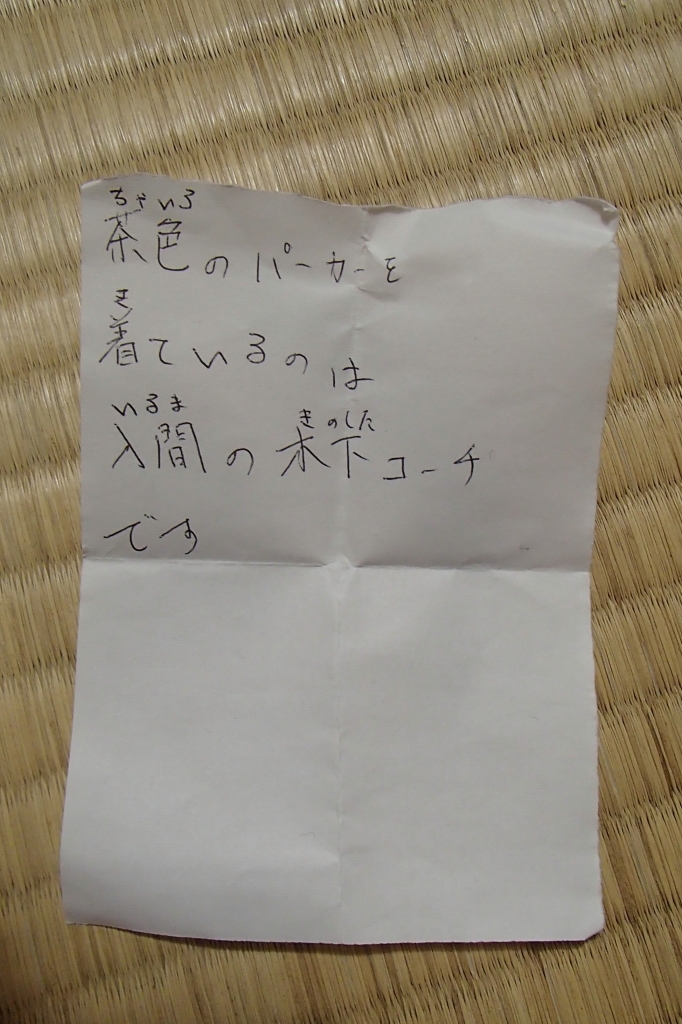 ちゃいろ
茶色のパーカーを
き
着ているのは
いるま きのした
入間の木下コーチ
です